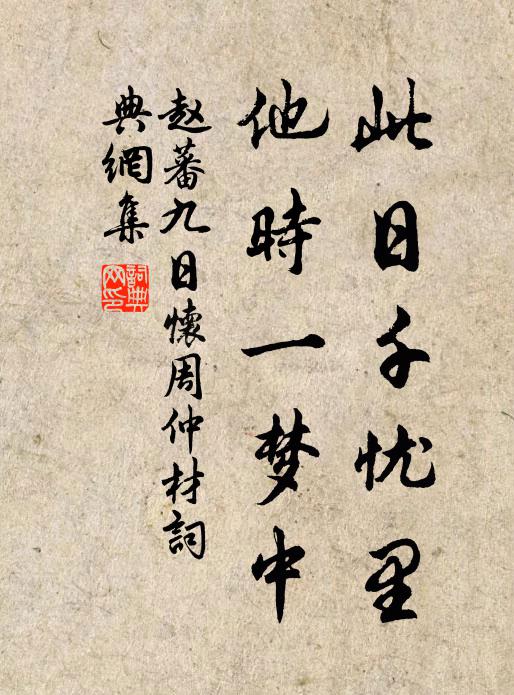 此日千忧里
他時一梦中
赵蕃九日懷周仲材詞
典網集
詞典
网印